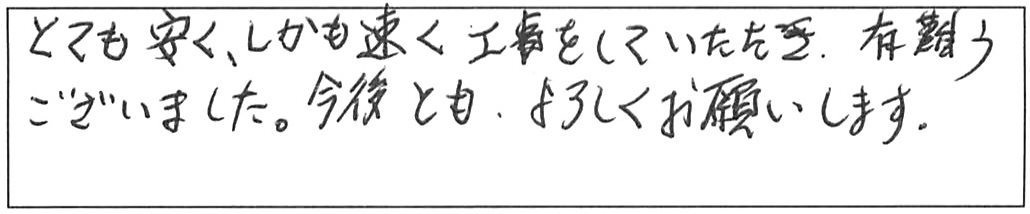 とても安く、しかも速く工事をしていただき、有難う
ございました。今後とも、よろしくお願いします。